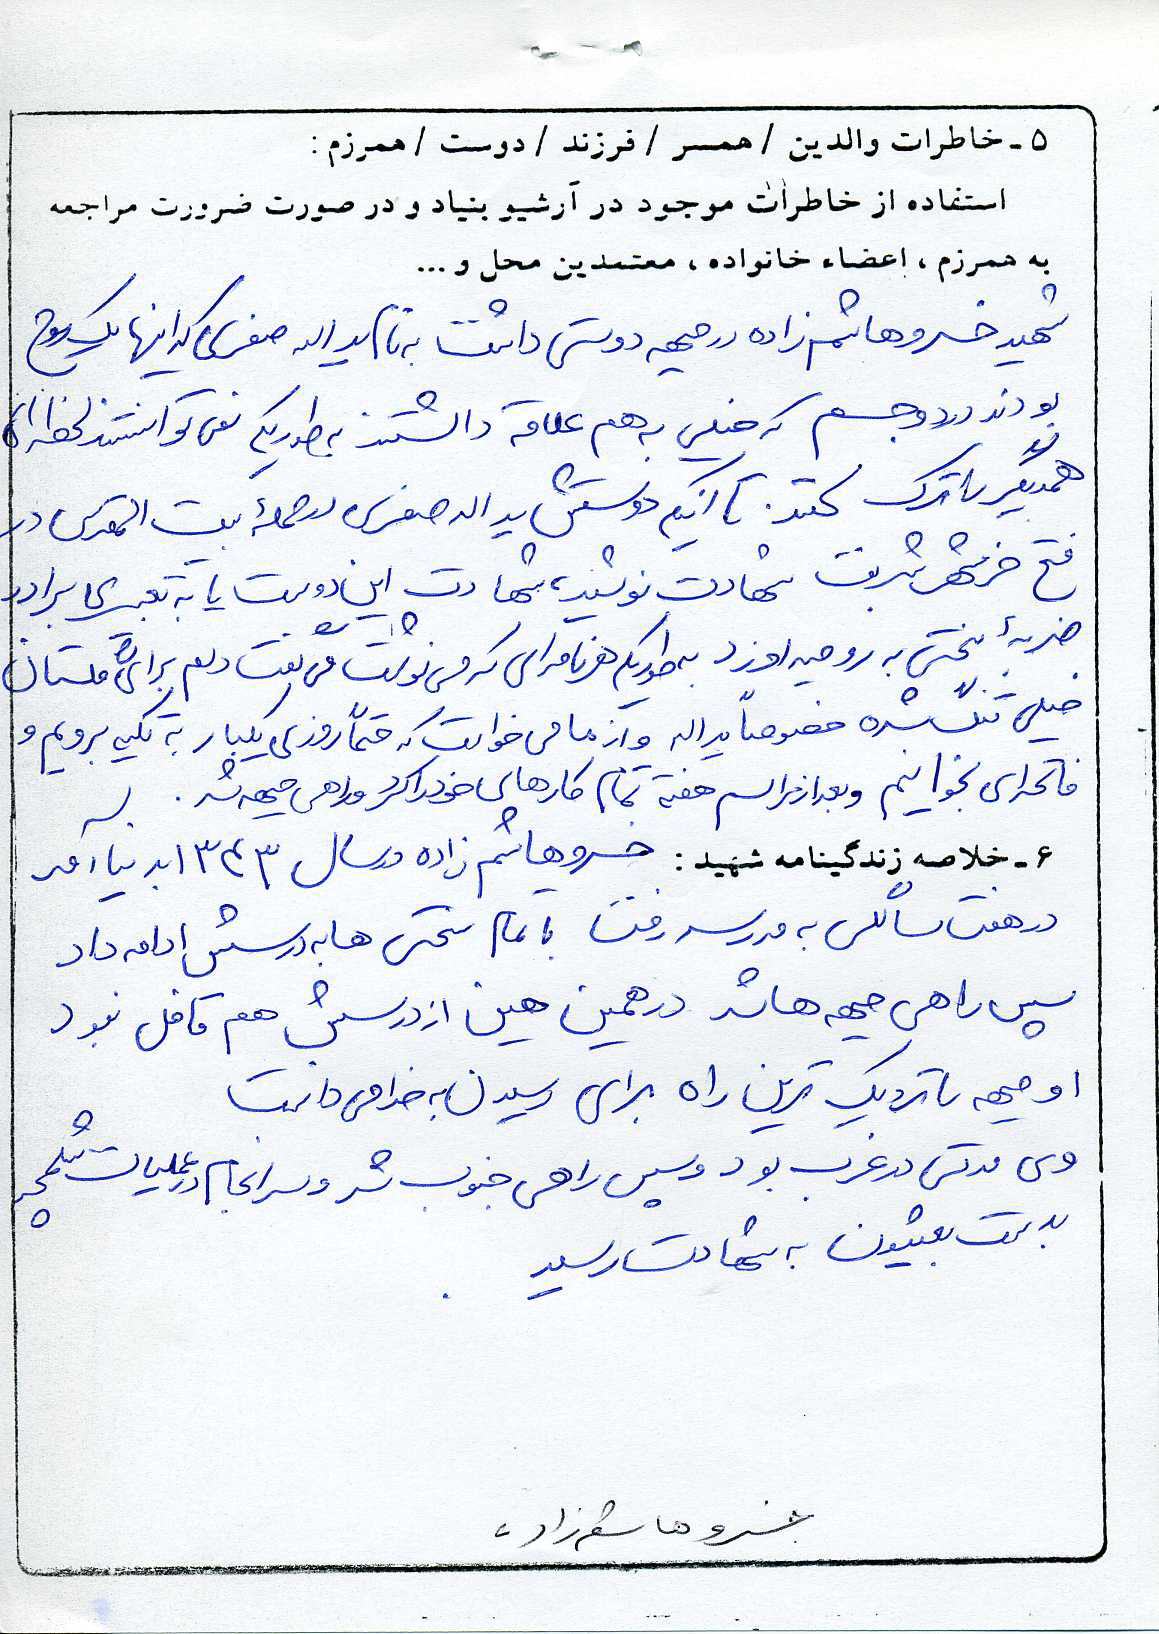 ۵ - خاطرات والدین / همسر / فرزند / دوست / همرزم :
استفاده از خاطرات موجود در آرشیو بنیاد و در صورت ضرورت مراجعه
به همرزم ، اعضاء خانواده ، معتمدین محل و ...
شهید خسرو هاشم زاده در جبهه دوستی داشت به نام ید اله صفری که اینها یک روح
بودند در دو جسم که خیلی به هم علاقه داشتند به طوریکه نمی توانستند لحظه ای
همدیگر را ترک کنند. تا اینکه دوستش ید اله صفری در حمله بیت المقدس در
فتح خرمشهر شربت شهادت نوشید، شهادت این دوست یا به تعبیری برادر
ضربهٔ سختی به روحیه او زد به طوریکه هر نامه ای که می نوشت می گفت دلم برای قلستان
خیلی تنگ شده خصوصاً ید اله و از ما می خواست که حتماً روزی یکبار به تکیه برویم و
فاتحه ای بخوانیم و بعد از مراسم هفته تمام کارهای خود را کرد و راهی جبهه شد .
۶ - خلاصه زندگینامه شهید : خسرو هاشم زاده در سال ۱۳۴۳ بدنیا آمد
در هفت سالگی به مدرسه رفت با تمام سختی ها به درسش ادامه داد
سپس راهی جبهه ها شد در همین هین از درسش هم قافل نبود
او جبهه را نزدیک ترین راه برای رسیدن به خدا می دانست
وی مدتی در غرب بود و سپس راهی جنوب شد و سرانجام در عملیات شلمچه
بدست بعثیون به شهادت رسید
خسرو هاشم زاده